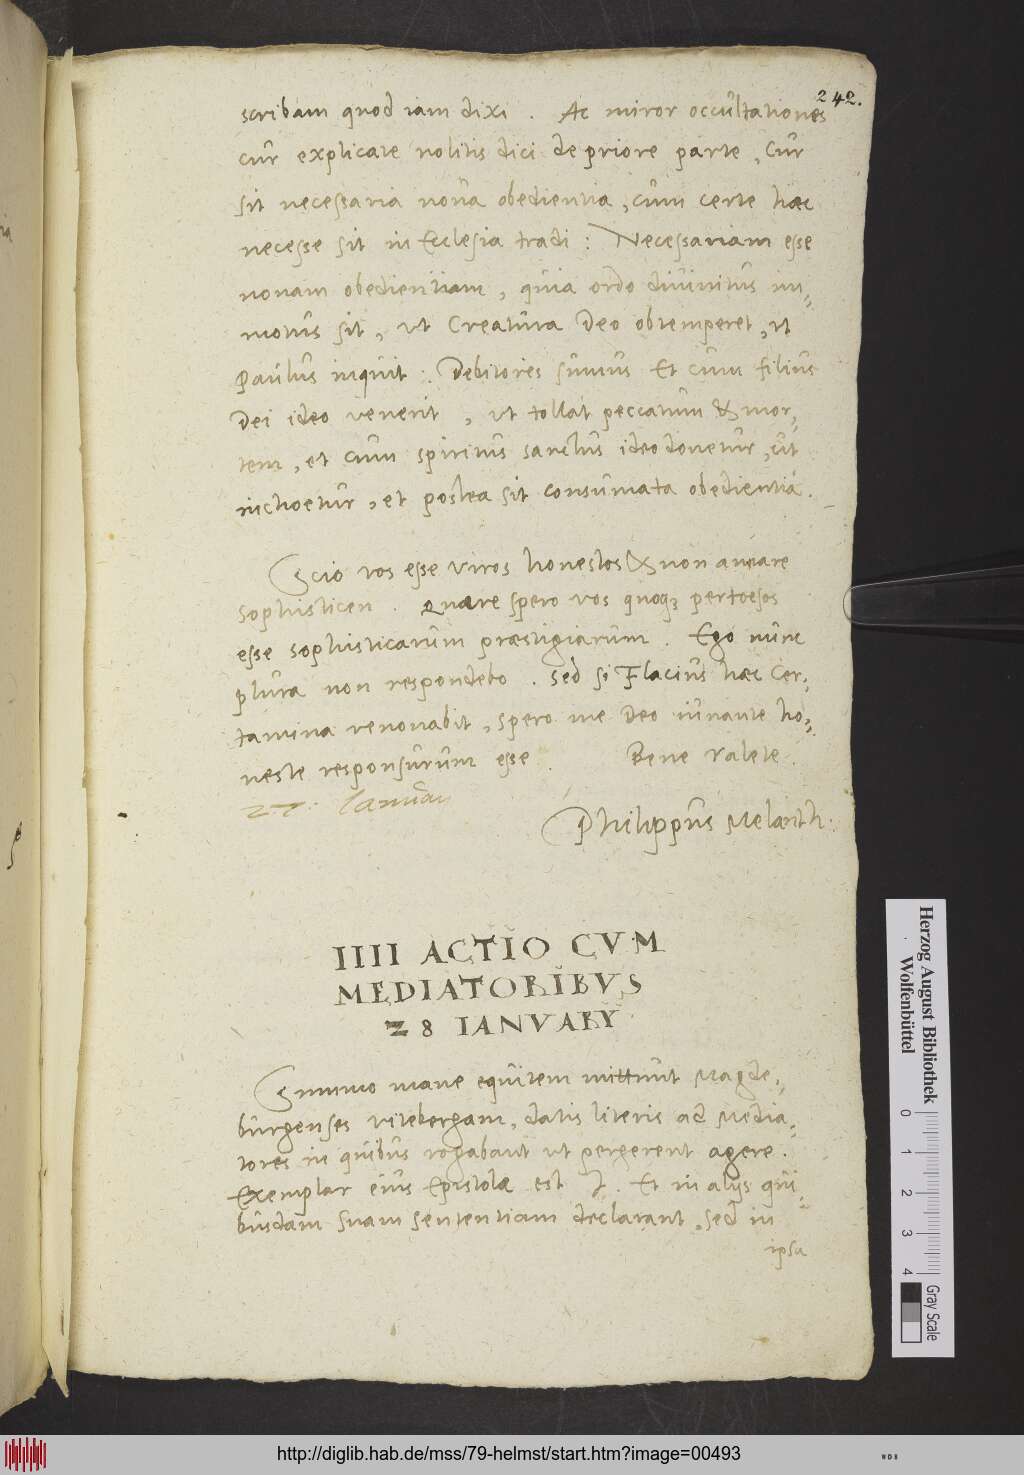 242.
scribam quod iam dixi. Ac miror occultationes
cur explicare nolitis dici de priore parte, Cur
sit necessaria nova obedientia, cum certe hæc
necesse sit in Ecclesia tradi: Necessariam esse
novam obedientiam, quia ordo divinitus im-
motus sit, ut Creatura Deo obtemperet, ut
Paulus inquit: Debitores sumus Et cum filius
Dei ideo venerit, ut tollat peccatum & mor-
tem, et cum spiritus sanctus ideo donetur, ut
inchoetur, et postea sit consumata obedientia.
Scio vos esse viros honestos & non amare
sophisticen. Quare spero vos quoq3 pertœsos
esse sophisticarum præstigiarum. Ego nunc
plura non respondebo. Sed si Flacius hæc cer-
tamina renovabit, spero me Deo iuvante ho-
neste responsurum esse. Bene valete.
27. Ianuar
Philippus Melanth.
IIII ACTIO CVM
MEDIATORIBVS
28 IANVARY
Summo mane equitem mittunt Magde-
burgenses vitebergam, datis literis ad Media-
tores in quibus rogabant ut pergerent agere.
Exemplar eius Epistolæ est I. Et in alys qui-
busdam suam sententiam declarant, sed in
ipsa
Herzog August Bibliothek
Wolfenbüttel
0 1 2 3 4
Gray Scale
http://diglib.hab.de/mss/79-helmst/start.htm?image=00493
WDB